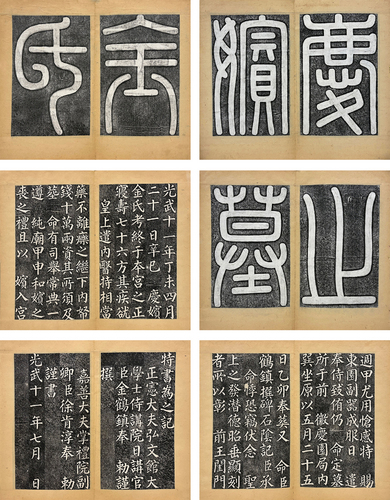 慶嬪
金氏
之墓
光武十一年丁未四月
二十一日辛巳 慶嬪
金氏考終于本宮之正
寢壽七十六方其疾
皇上遣內醫持相當
藥不離 之継下內帑
錢十萬兩資其所須及
命有司擧常典一
遵 純廟甲申和嬪之
喪之禮且以 嬪入宮
週甲尤用愴感特賜
東園副器成服日遣
奉侍致侑仍 命定墓
所于前 徽慶園局內
巽坐原以五月二十
日乙卯奉葬又 命臣
鶴鎮撰碑石陰記臣承
命悸恐竊伏念聖
上之發潛德昭垂顯刻
者所以彰 前王閨門
特書為之記
正憲大夫弘文館大
學士侍講院日講官
臣金鶴鎮奉 勅謹
撰
嘉善大夫掌禮院副
卿臣徐肯淳奉 勅
謹書
光武十一年七月 日